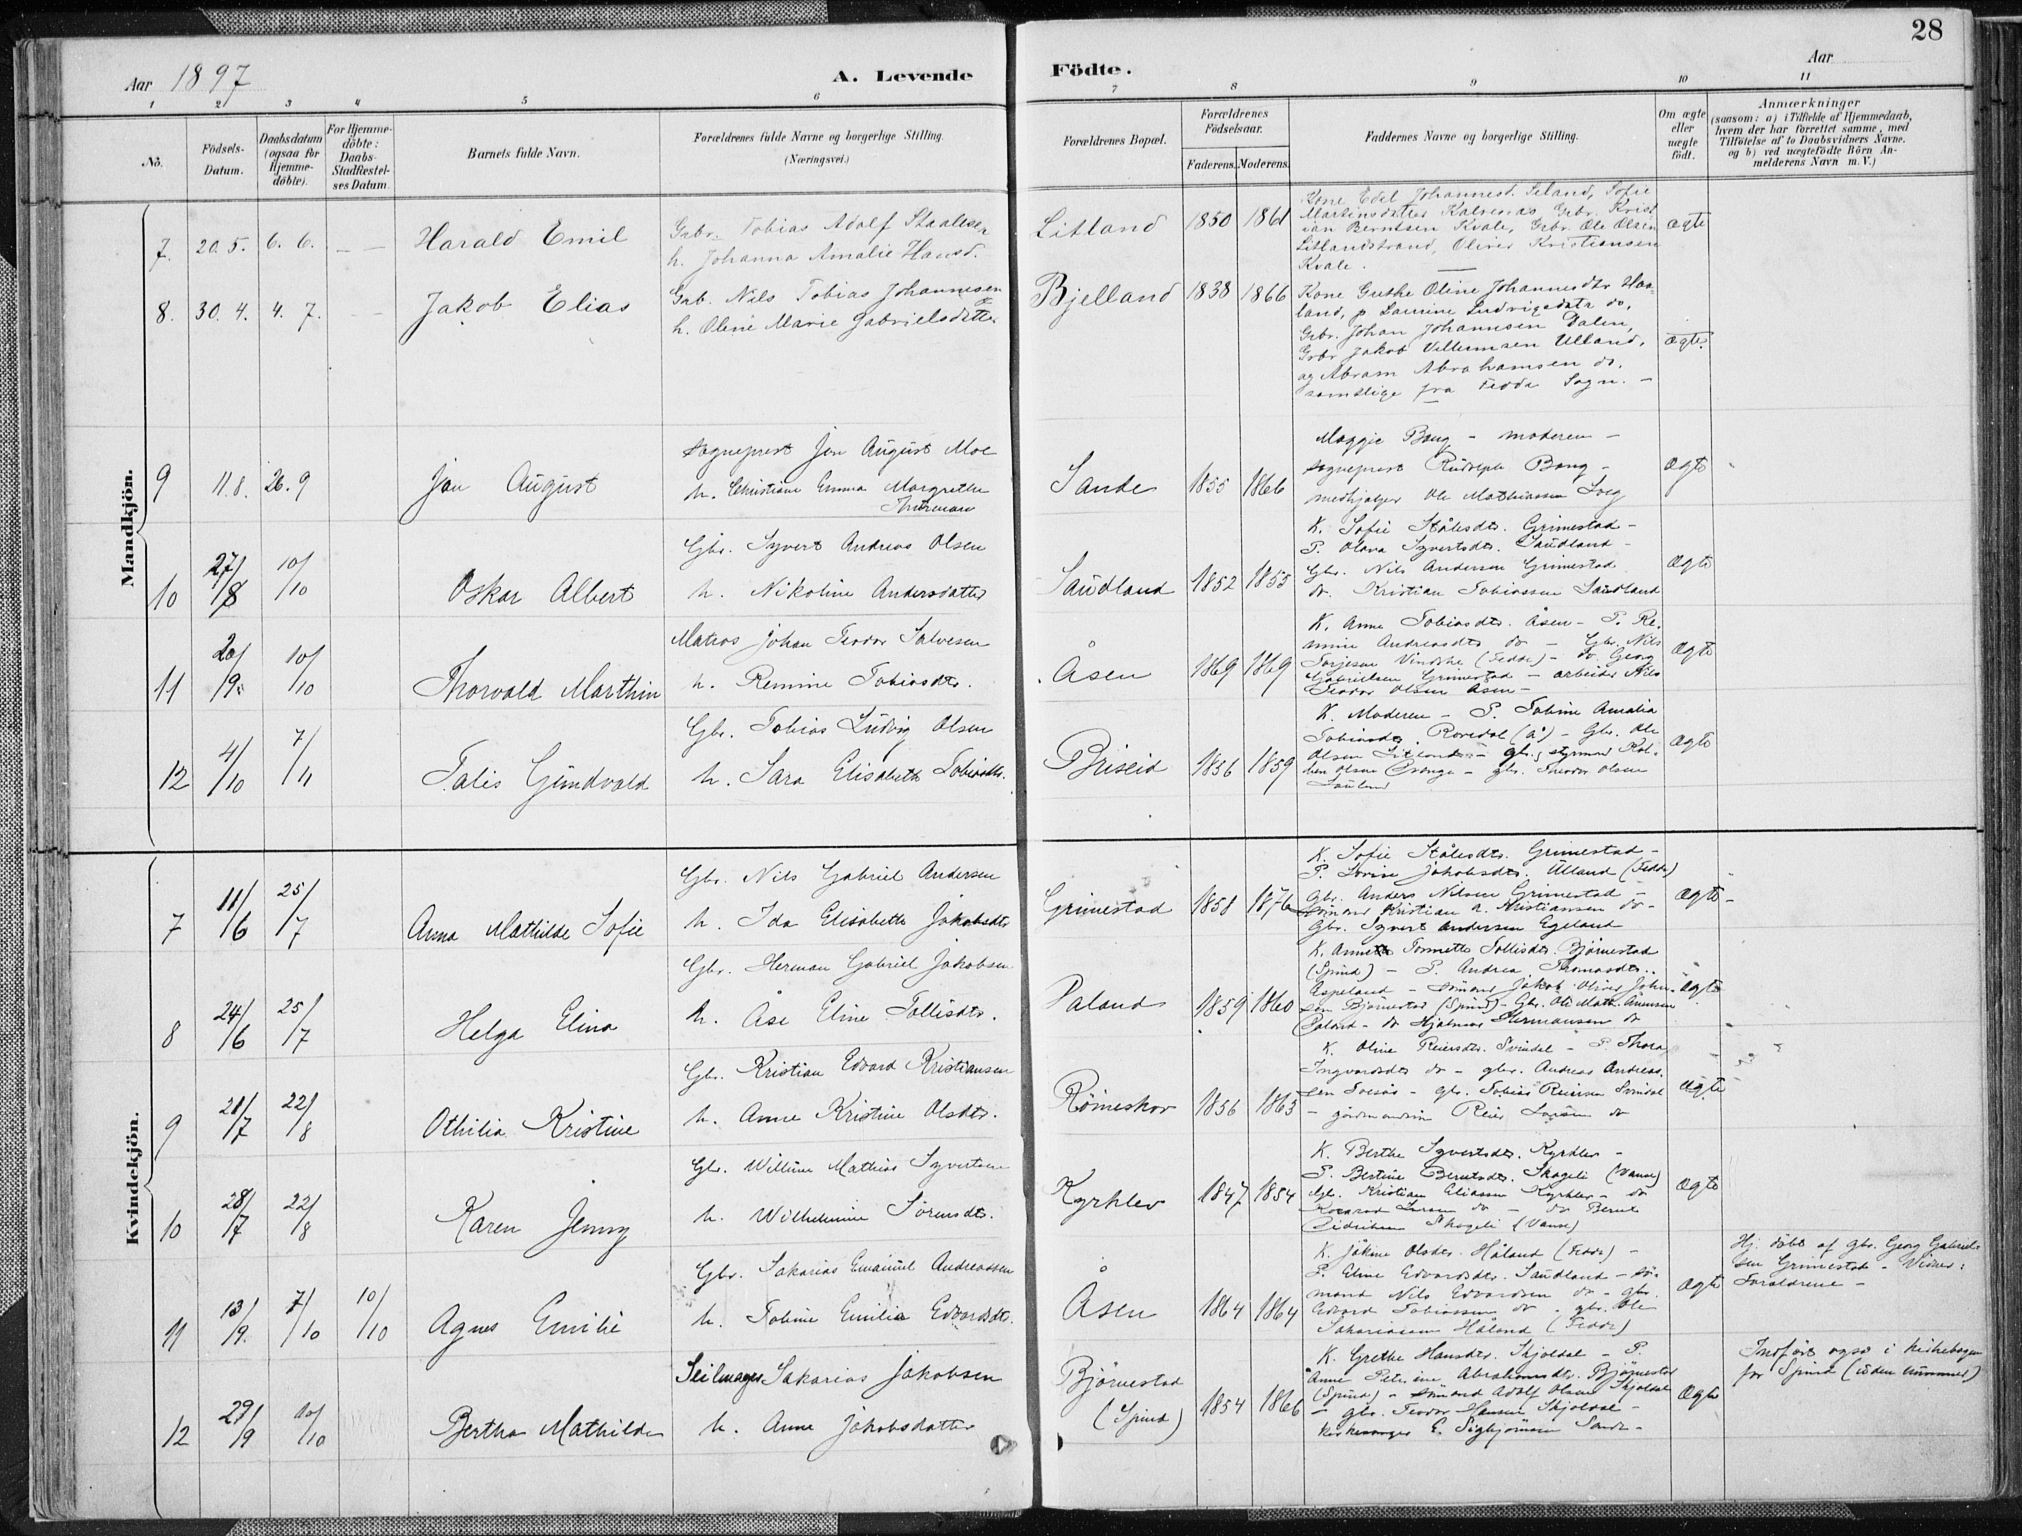 28
Aar 1897
A. Levende
Födte.
Aar
1 2 3 4 5 6 7 8 9 10 11
No.
Födsels-
Datum.
Daabsdatum
(ogsaa for
Hjemme-
döbte).
For Hjemme-
döbte:
Daabs-
Stadfæstel-
ses Datum.
Barnets fulde Navn.
Forældrenes fulde Navne og borgerlige Stilling.
(Næringsvei.)
Forældrenes Bopæl.
Forældrenes
Födselsaar.
Faderens. Moderens.
Faddernes Navne og borgerlige Stilling.
Om ægte
eller
uægte
födt.
Anmærkninger
(saasom: a) i Tilfælde af Hjemmedaab,
hvem der har forrettet samme, med
Tilföielse af to Daabsvidners Navne.
og b) ved uægtefödte Börn An-
melderens Navn m. V.)
Mandkjön.
7. 20. 5. 6. 6. — — Harald Emil
Gbr. Tobias Adolf Staalesen
h. Johanna Amalie Hansd.
Litland 1850 1861
Kone Edel Johannesd. Seland, Sofie
Martinsdatter Kalvenes, Gbr. Krist
ian Berntsen Kvale, Gbr. Ole Olsen
Litlandstrand, Oliver Kristiansen
Kvale.
ægte
8. 30. 4. 4. 7. Jakob Elias
Gbr. Nils Tobias Johannesen
h. Oline Marie Gabrielsdatter
Bjelland 1838 1866
Kone Guthe Oline Johannesdtr Haa-
land, p Laurine Ludvigsdatr do,
Gbr. Johan Johannesen Dalen,
Gbr Jakob Villumsen Ulland,
og Abram Abrahamsen do.
samtlige fra Fedde Sogn. —
ægte.
9 11.8. 26.9 Jon August
Sogneprest Jon August Moe
h. Christiane Emma Margrethe
Thurmann
Sande 1855 1866
Maggie Bang - moderen -
sogneprest Rudolph Bang -
medhjælper Ole Mathiassen
Ægte
10 27/8 10/10 Oskar Albert
Gbr. Syvert Andreas Olsen
h. Nikoline Andersdatter
Saudland 1852 1855
K. Sofie Ståhlsdtr. Grimestad -
P. Olava Syvertsdtr. Saudland -
Gbr. Nils Andersen Grimestad
do. Kristian Tobiassen Saudland
Ægte
11 20/9. 10/10 Thorvald Marthin
Matros Johan Teodor Salvesen
h. Remine Tobiasdtr.
Åsen 1869 1869
K. Anne Tobiasdtr. Åsen - P. Re-
mine Andreasdtr do - Gbr. Nils
Torjesen (Fedde) - do Georg
Gabrielsen Grimestad - arbeider Nils
Teodor Olsen Åsen -
Ægte
12 4/10 7/11 Talis Gundvald
Gbr. Tobias Ludvig Olsen
h. Sara Elisabeth Tobiasdtr.
Briseid 1856 1859
K. Moderen - P. Tobine Amalia
Tobiasdtr. - Gbr. Ole
Olsen - gbr. styrmand
Olsen - gbr. Teodor Olsen
Ægte
Kvindekjön.
7 11/6 25/7 Anna Mathilde Sofie
Gbr. Nils Gabriel Andersen
h. Ida Elisabeth Jakobsdtr
Grimestad 1858 1876
K. Sofie Ståhlsdtr. Grimestad -
P. Lovise Jakobsdtr. Ulland (Fedde)
Gbr. Anders Nilsen Grimestad -
sømand Kristian A. Kristiansen do -
Gbr. Syvert Andersen Egeland
Ægte -
8 24/6 25/7 Helga Elina
Gbr. Herman Gabriel Jakobsen
h. Åse Eline Tollisdtr.
Paland 1859 1860
K. Annette Tomette Tollisdtr. Bjørnestad
(Spind) - P. Andrea Thomasdtr.
Aspeland - sømand Jakob Oliver John-
sen Bjørnestad (Spind) - Gbr. Ole Math.
Paland - do Hjalmar Hermansen do
Ægte
9 21/7 22/8 Othilia Kristine
Gbr. Kristian Edvard Kristiansen
h. Anne Kristine Olsdtr.
Römeskor 1856 1863
K. Oline Reiersdtr. Svindal - P. Thora
Ingvardsdtr do - gbr. Andreas Andreas-
sen - gbr. Tobias Reiersen Svindal
- Reier do
Ægte
10 28/7 22/8 Karen Jenny
Gbr. Willum Mathias Syvertsen
h. Wilhelmine Sörensdtr.
Kyrklev 1847 1854
K. Berthe Syvertsdtr. Kyrklev -
P. Bertine Berntsdtr. Skogeli (Vanse)
Gbr. Kristian Eliassen Kyrklev - do
Larsen do - do Bernt
Skogeli (Vanse)
Ægte
11 13/9. 7/10 10/10 Agnes Emilie
Gbr. Sakarias Emanuel Andreassen
h. Tobine Emilia Edvardsdtr.
Åsen 1864 1864
K. Jakine Olsdtr. Håland (Fedde) -
P. Eline Edvardsdtr. Saudland - sø-
mand Nils Edvardsen do - gbr.
Edvard Tobiassen do - gbr. Ole
Sakariassen Håland (Fedde)
Ægte
Hj. döbt af gbr. Georg Gabriel-
sen Grimestad - Vidner:
Forældrene -
12 29/9 10/10 Bertha Mathilde
Seilmager Sakarias Jakobsen
h. Anne Jakobsdatter
Björnestad
(Spind) 1854 1866
K. Grethe Hansdtr. Skjoldal - P.
Anne Petrine Abrahamsdtr. Bjørnestad
(Spind) - sømand Adolf Olsen Skjoldal
- gbr. Teodor Hansen Skjoldal -
kirkesanger E. Sigbjørnsen Sande -
Ægte
Indført også i kirkebogen
for Spind (uden nummer)